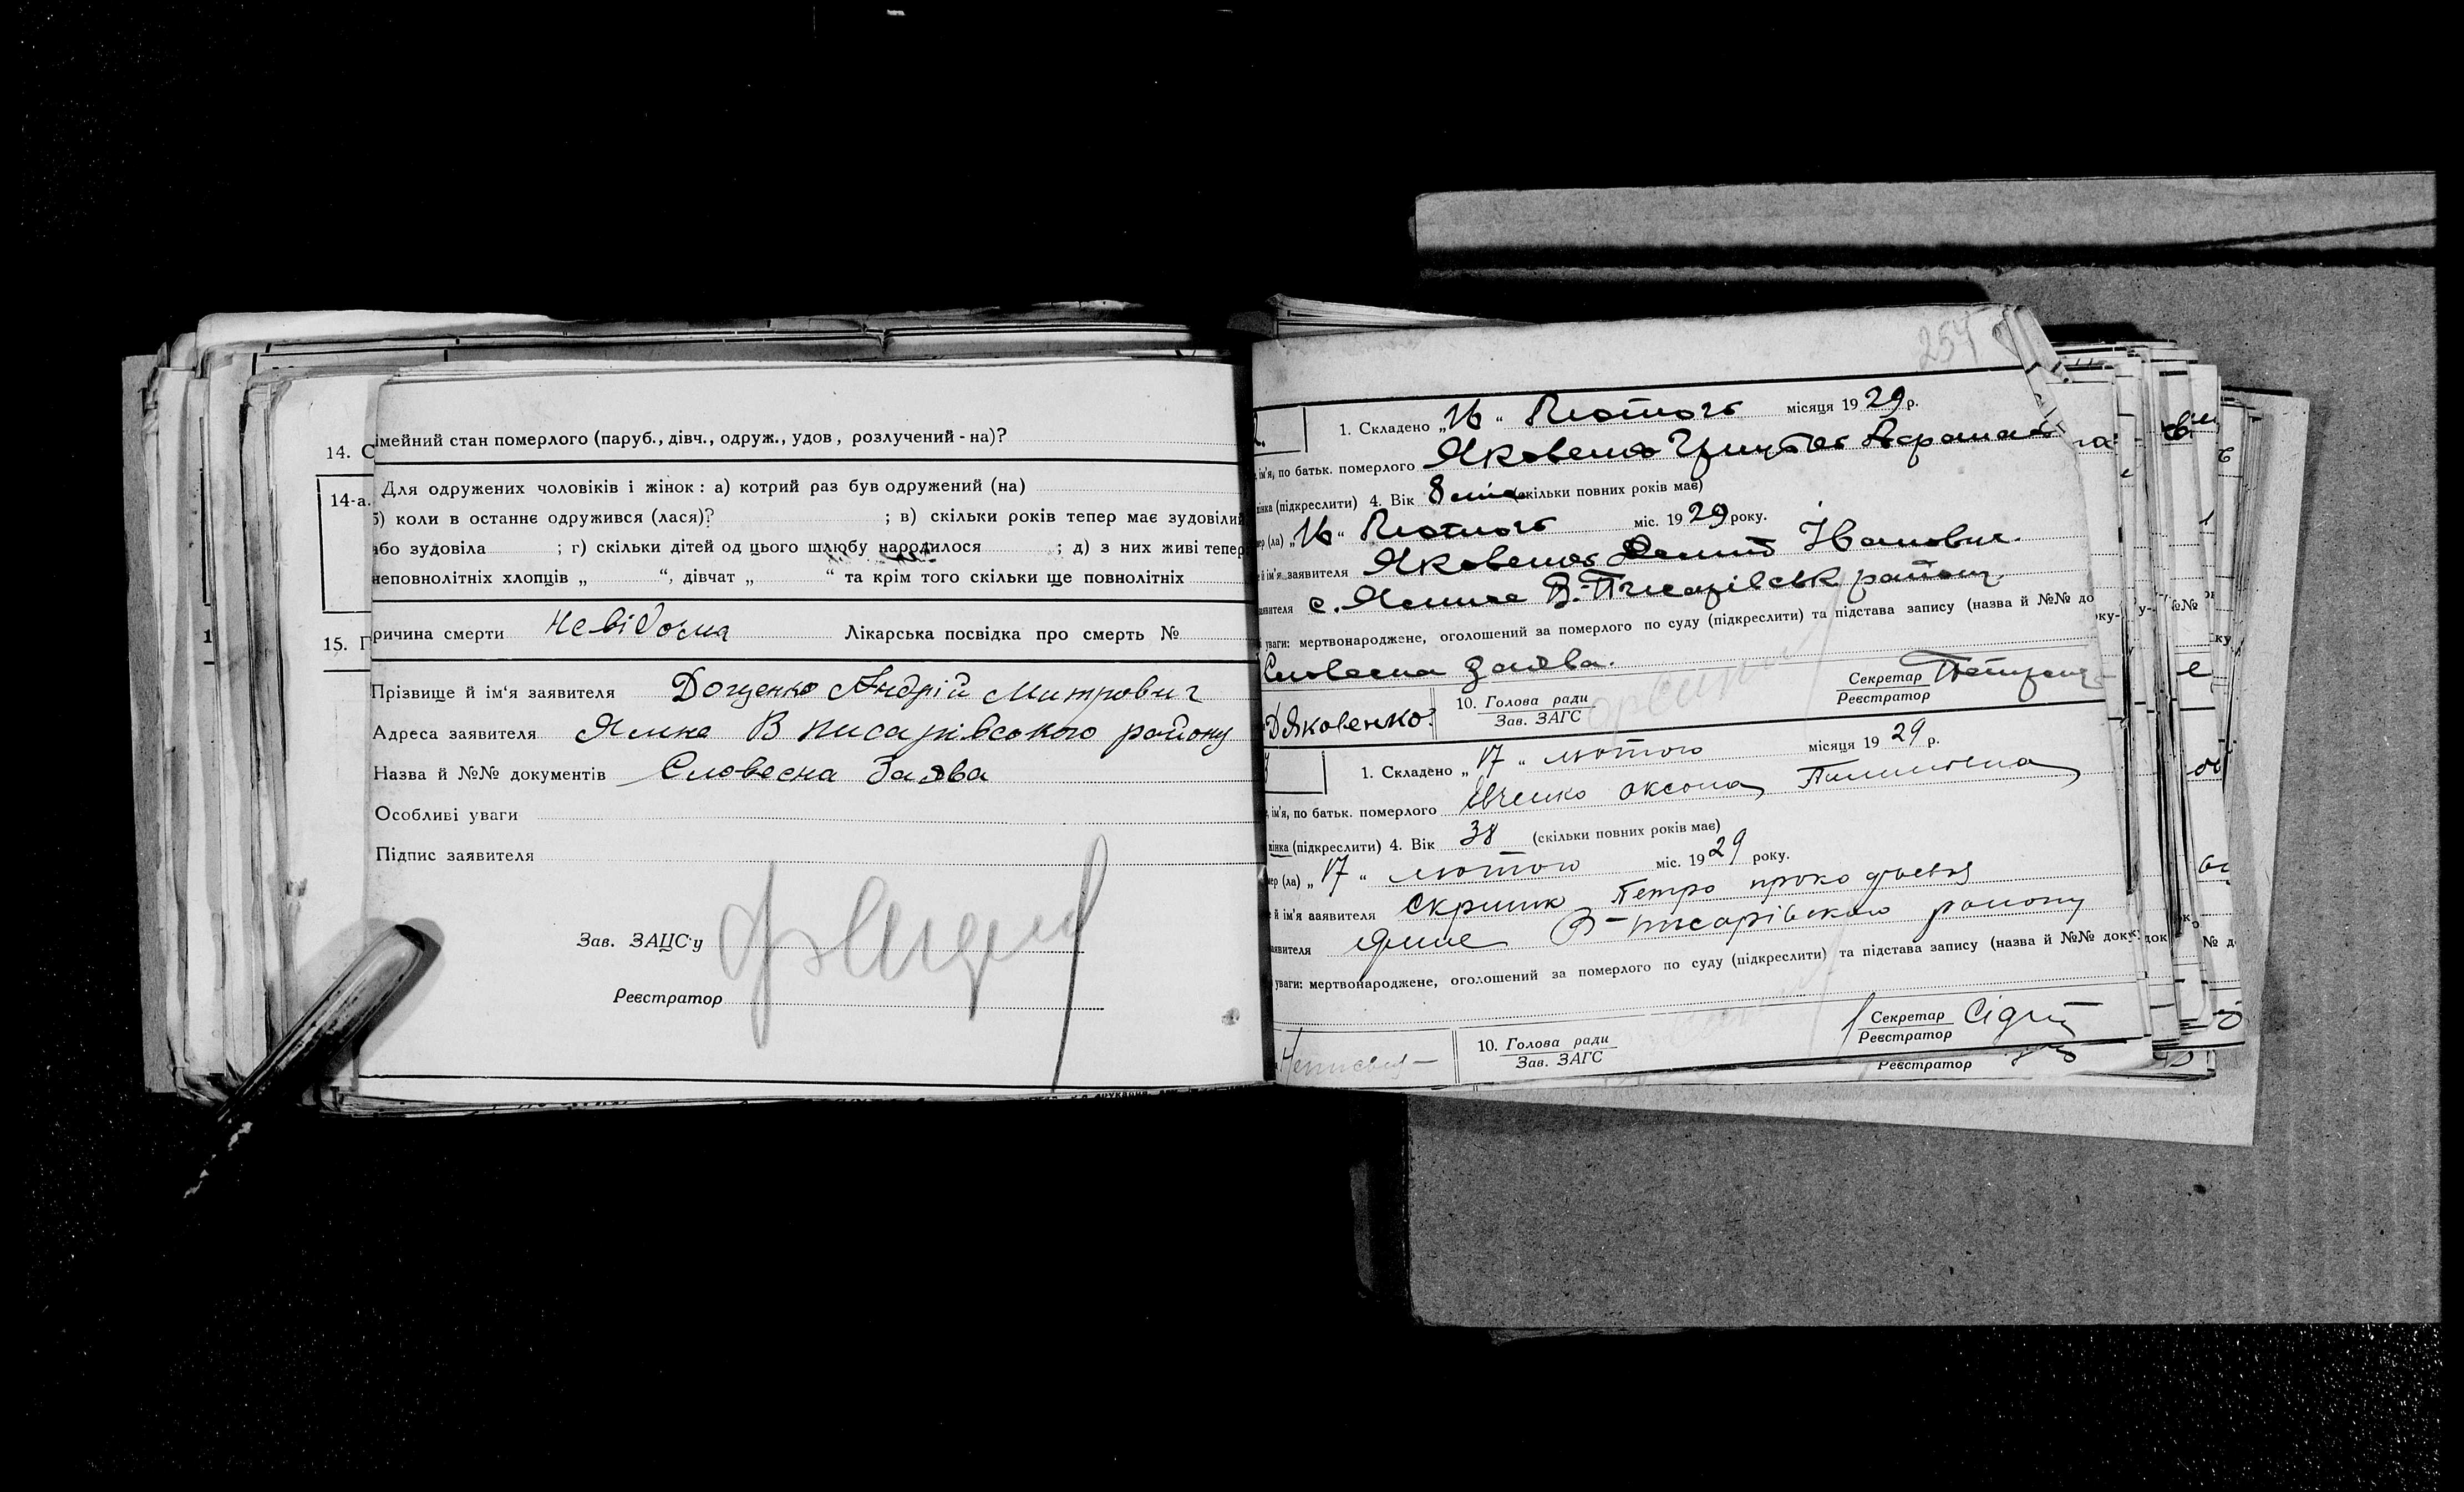 14. С
імейний стан померлого (паруб., дівч., одруж., удов, розлучений - на)?
14-а.
Для одружених чоловіків і жінок: а) котрий раз був одружений (на)
б) коли в останнє одружився (лася)? ; в) скільки років тепер має зудовілий
або зудовіла ; г) скільки дітей од цього шлюбу народилося ; д) з них живі тепер
неповнолітніх хлопців „ “, дівчат „ “ та крім того скільки ще повнолітніх
15. П
ричина смерти Невідома Лікарська посвідка про смерть №
Прізвище й ім'я заявителя Доценко Андрій Митрович
Адреса заявителя Ямне В писарівського району
Назва й №№ документів Словесна Заява
Особливі уваги
Підпис заявителя
Зав. ЗАЦС'у
Реєстратор
254
1. Складено „16“ Лютого місяця 1929 р.
ім'я, по батьк. померлого Яковенко
інка (підкреслити) 4. Вік 8 (скільки повних років має)
мер (ла) „16“ Лютого міс. 1929 року.
й ім'я заявителя Яковенко Демид Іванович
заявителя с. Ямне В.-Писарівськ району
уваги: мертвонароджене, оголошений за померлого по суду (підкреслити) та підстава запису (назва й №№ до
Словесна заява.
Д Яковенко
10. Голова ради
Зав. ЗАГС
Секретар
Реєстратор
1. Складено „17“ лютого місяця 1929 р.
ім'я, по батьк. померлого Івченко оксана Пилиповна
інка (підкреслити) 4. Вік 38 (скільки повних років має)
мер (ла) „17“ лютого міс. 1929 року.
й ім'я заявителя Скрипник Петро
заявителя Ямне В-писарівського району
уваги: мертвонароджене, оголошений за померлого по суду (підкреслити) та підстава запису (назва й №№ доку
10. Голова ради
Зав. ЗАГС
Секретар
Реєстратор
Реєстратор